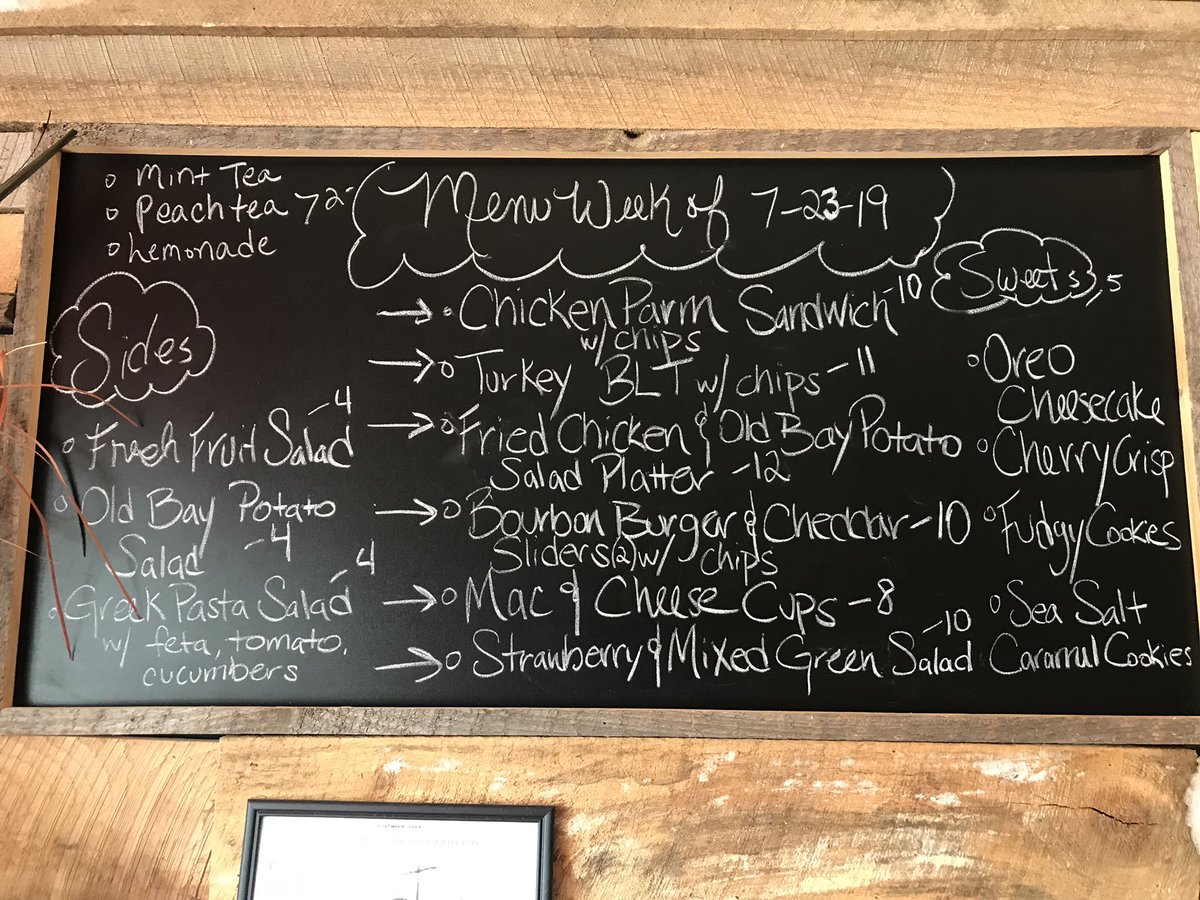 Menu Week of 7-23-19
o Mint Tea
o Peach tea > 2-
o Lemonade
Sides
o Fresh Fruit Salad -4
o Old Bay Potato
Salad -4
o Greek Pasta Salad -4
w/ feta, tomato,
cucumbers
→ o Chicken Parm Sandwich -10
w/ chips
→ o Turkey BLT w/ chips -11
→ o Fried Chicken & Old Bay Potato
Salad Platter -12
→ o Bourbon Burger & Cheddar -10
Sliders (2) w/ chips
→ o Mac & Cheese Cups -8
→ o Strawberry & Mixed Green Salad -10
Sweets
o Oreo
Cheesecake
o Cherry Crisp
o Fudgy Cookies
o Sea Salt
Caramul Cookies